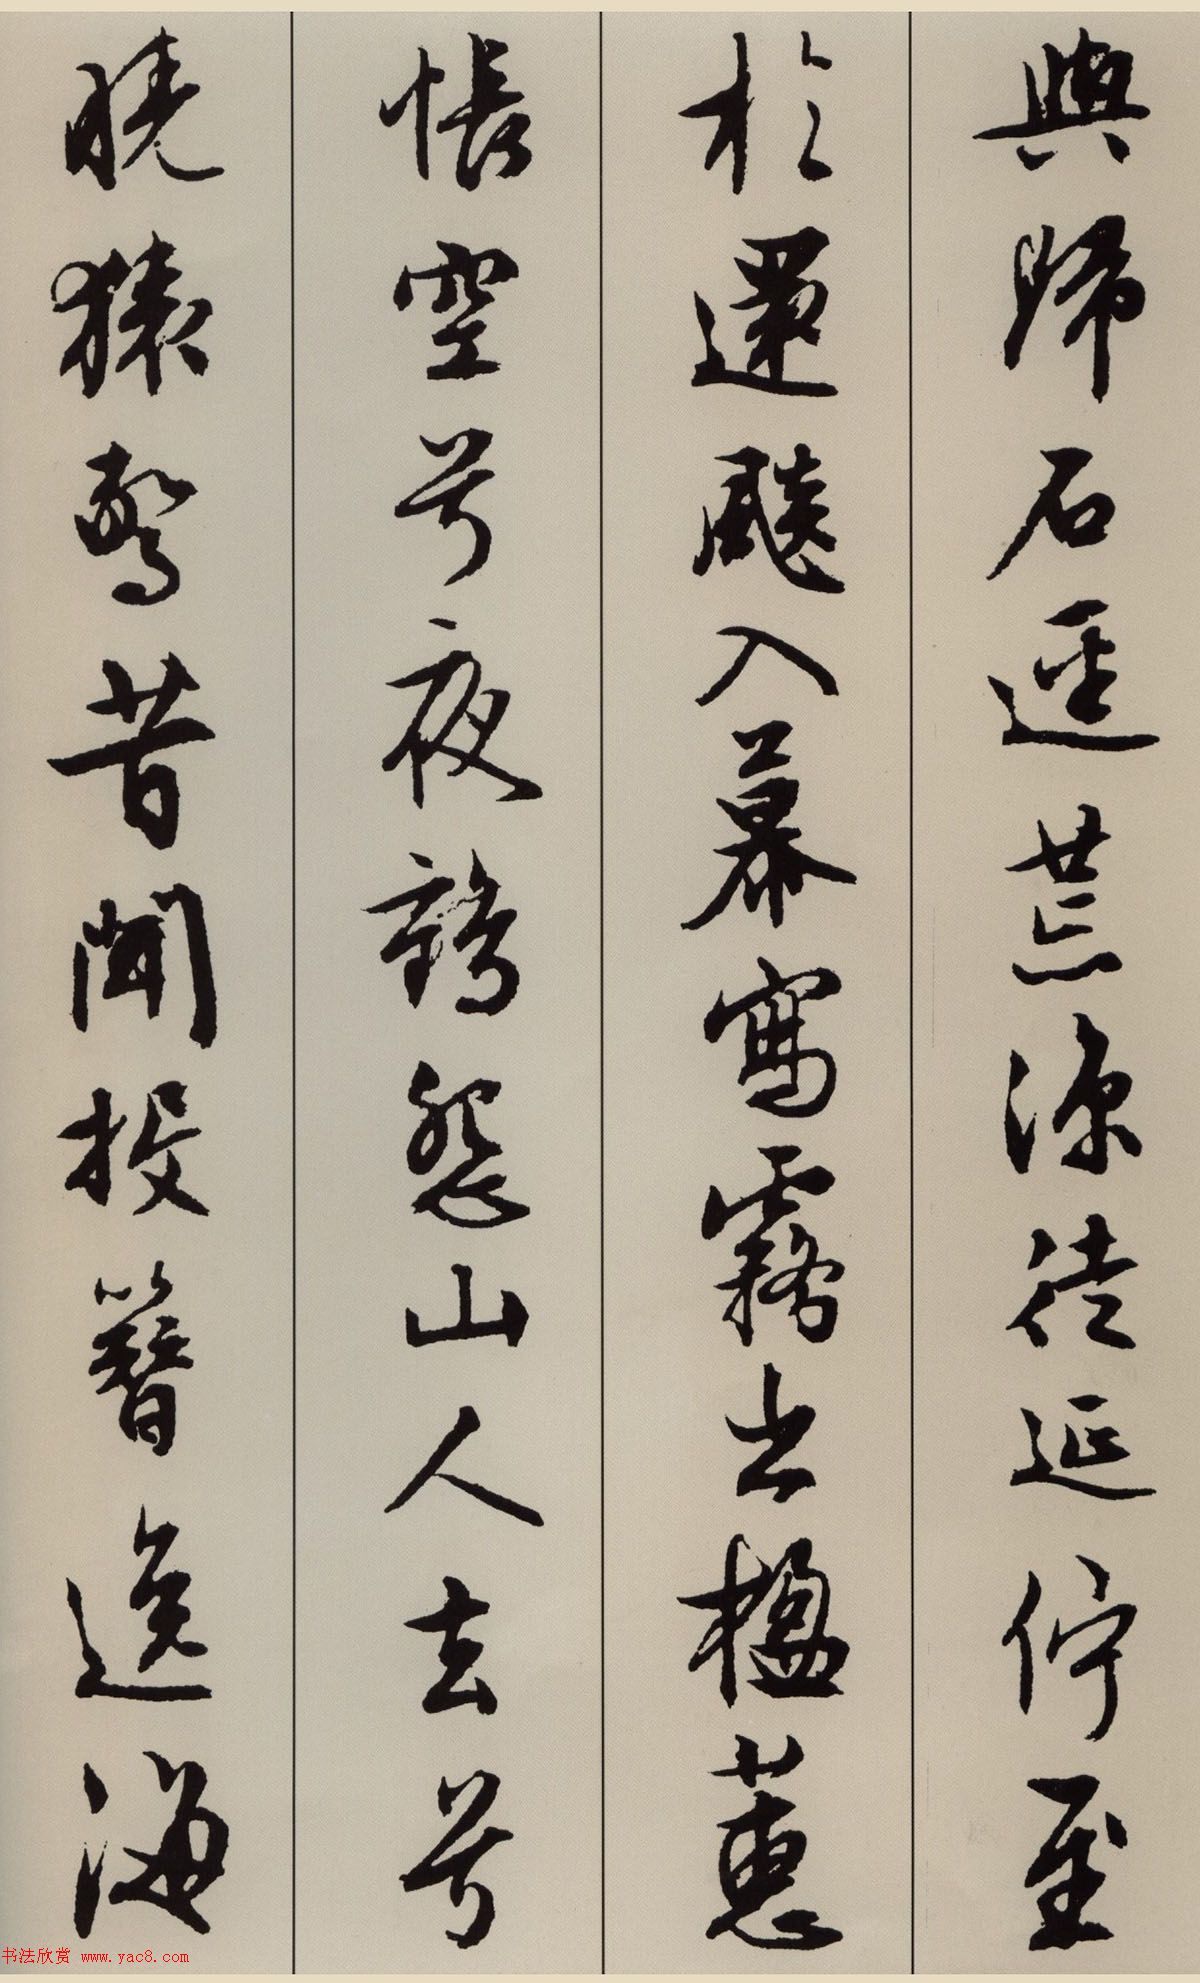 與歸石逕荒涼徒延佇至
於還飈入幕寫霧出楹蕙
悵空兮夜鶴怨山人去兮
曉猿驚昔聞投簪逸海
书法欣赏 www.yac8.com